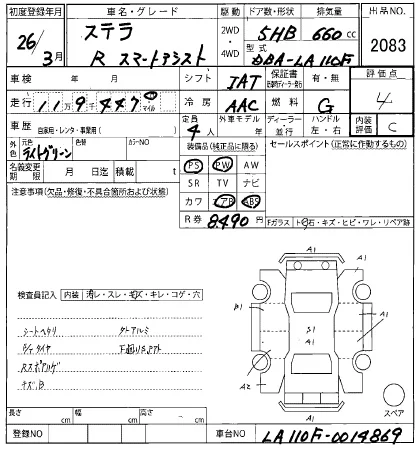 初度登録年月 車名・グレード 駆動 ドア数・形状 排気量 出品NO.
26/3月 ステラ R スマートアシスト 2WD・4WD 5HB 660cc 2083
型式 DBA-LA110F
車検 年 月 シフト IAT 保証書 有・無 評価点
走行 11万9千447 マイル 冷房 AAC 燃料 G 4
車歴 自家用・レンタ・事業用( ) 定員 4人 外車モデル 年 ディーラー・並行 ハンドル 左・右 内装評価 C
外色 元色 ライトグリーン 色替 カラーNO 装備品(純正品に限る) セールスポイント(正常に作動するもの)
名義変更期限 月 日迄 積載 t PS PW AW
注意事項(欠品・修復・不具合箇所および状態) SR TV ナビ
カワ エアB ABS
R券 8,490円 Fガラス ト石・キズ・ヒビ・ワレ・リペア跡
検査員記入 内装 汚レ・スレ・キズ・キレ・コゲ・穴
シートヘタリ 外アルミ
キズ、B
A1
A1
A1
B1
S1
A1
A1
A2
A1
スペア
長さ cm 幅 cm 高さ cm
登録NO 車台NO LA110F-0014869